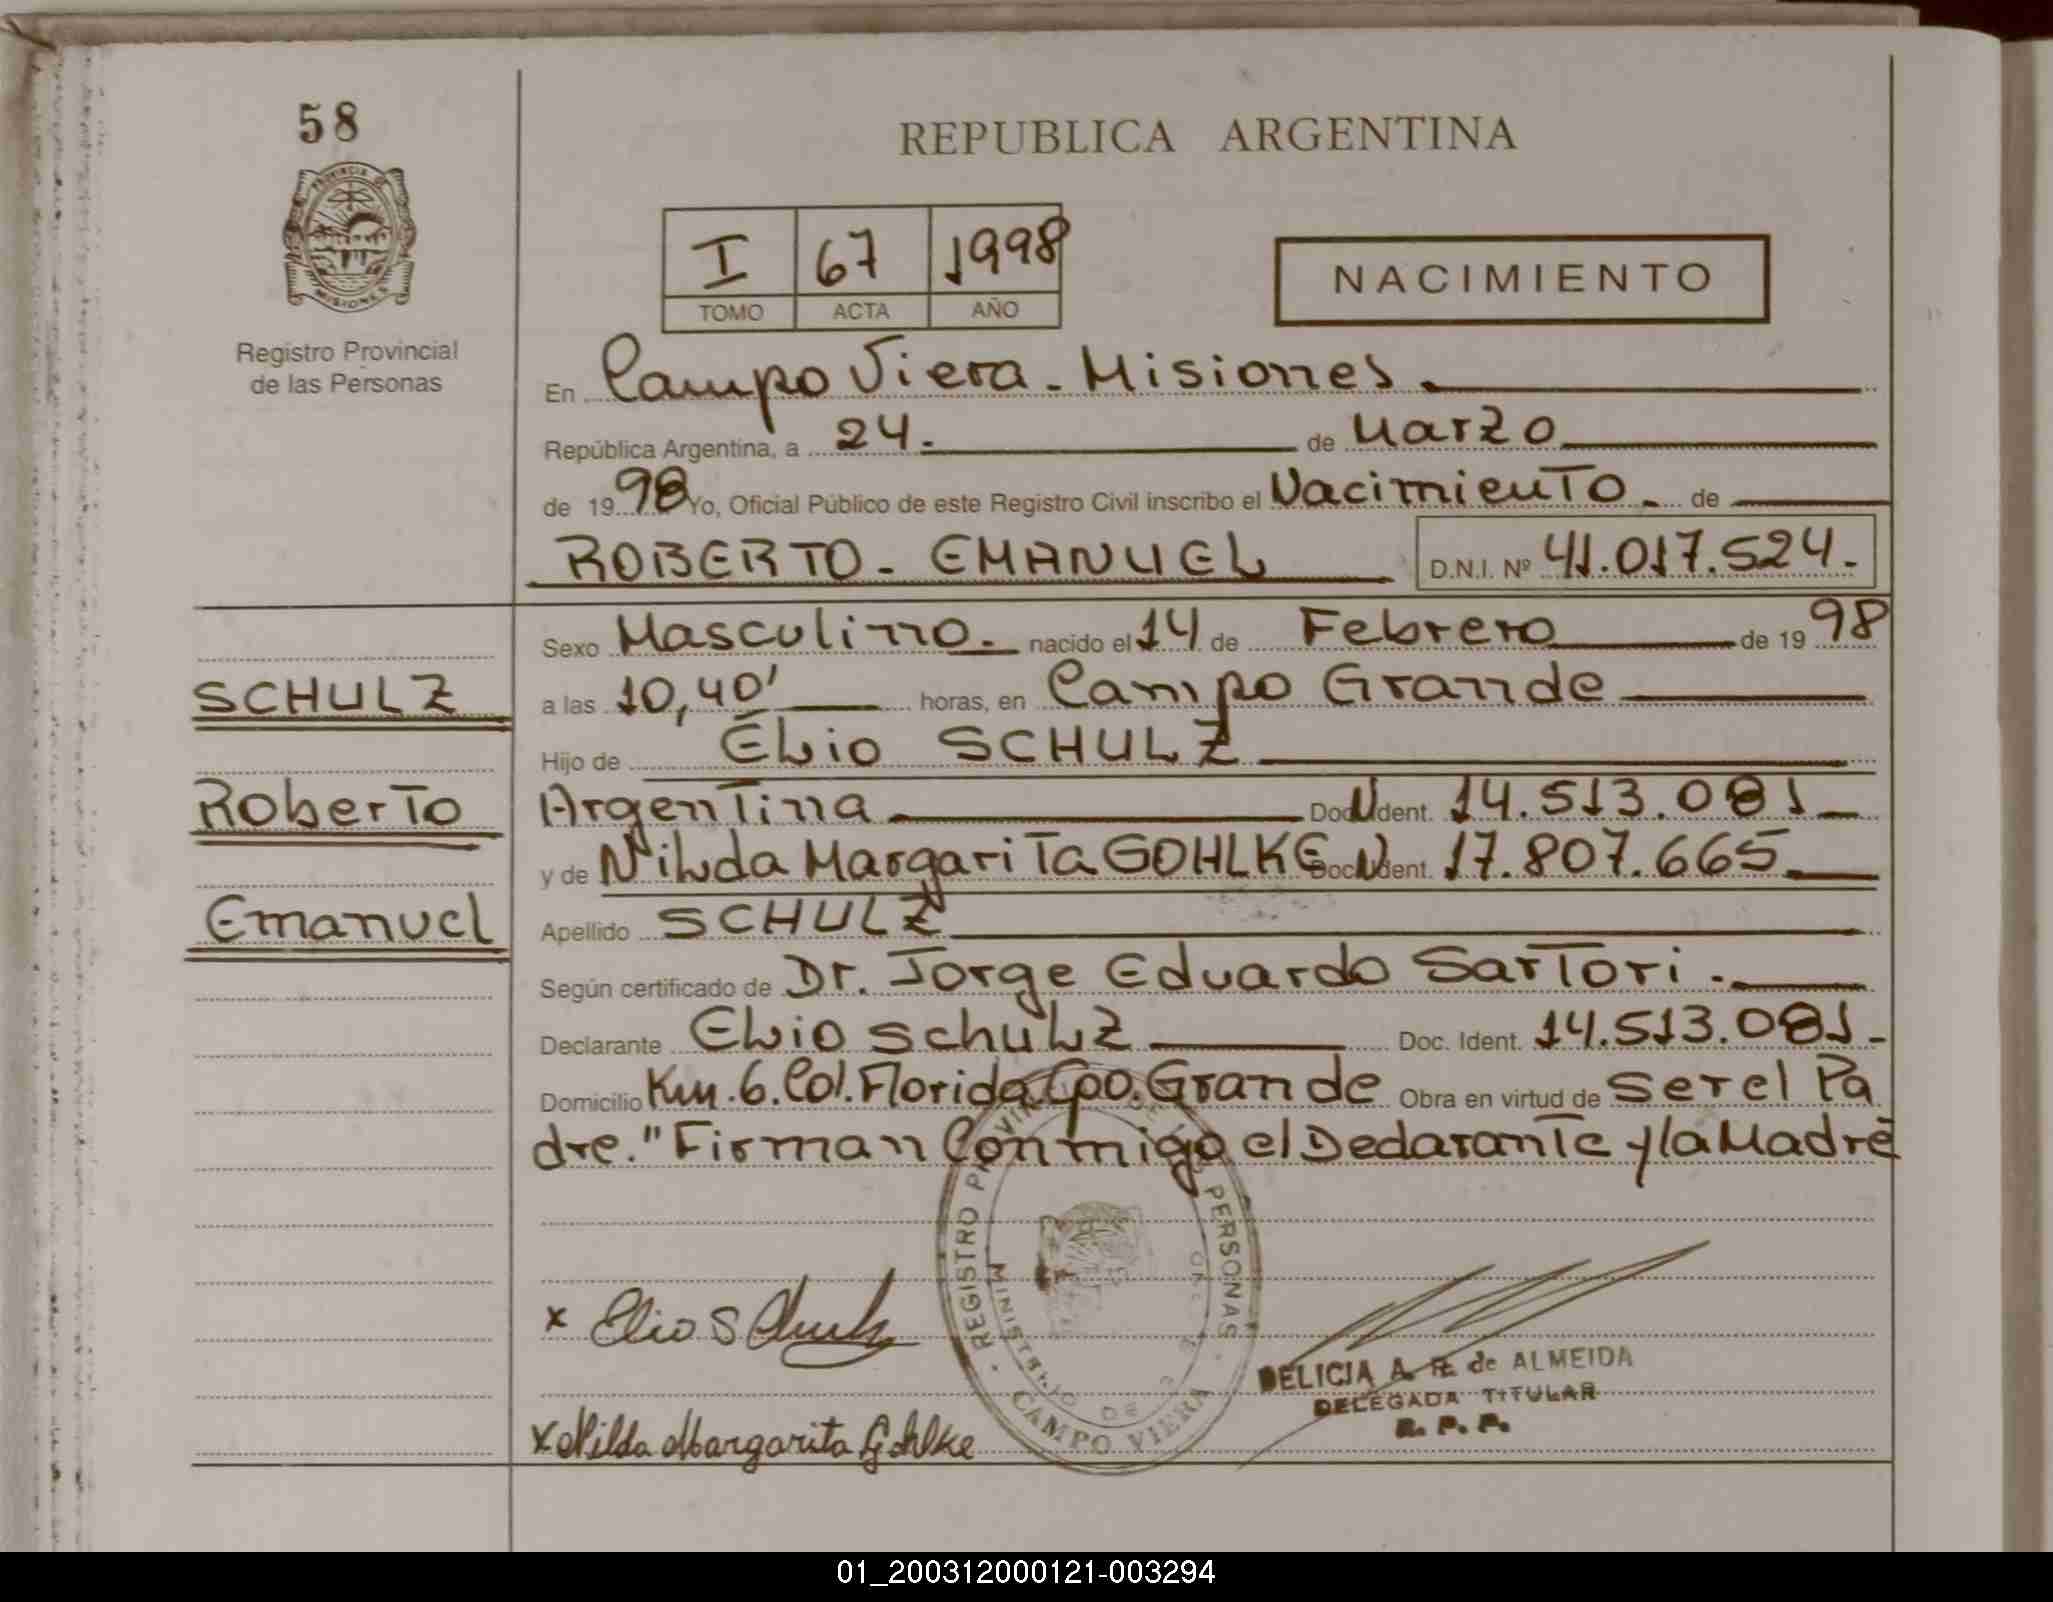 58
PROVINCIA DE
MISIONES
Registro Provincial
de las Personas
REPUBLICA ARGENTINA
I 67 1998
TOMO ACTA AÑO
NACIMIENTO
En Campo Viera - Misiones.
República Argentina, a 24. de Marzo
de 1998 Yo, Oficial Público de este Registro Civil inscribo el Nacimiento. de
ROBERTO - EMANUEL D.N.I. Nº 41.017.524.-
Sexo Masculino. nacido el 14 de Febrero de 1998
SCHULZ
a las 10,40' horas, en Campo Grande
Hijo de Elio SCHULZ
Roberto
Argentina Doc. Ident. 14.513.081
y de Nilda Margarita GOHLKE Doc. Ident. 17.807.665
Emanuel
Apellido SCHULZ
Según certificado de Dr. Jorge Eduardo Sartori.
Declarante Elio Schulz Doc. Ident. 14.513.081-
Domicilio Km. 6. Col. Florida. Cpo. Grande Obra en virtud de ser el Pa
dre." Firman Conmigo el Declarante y la Madre
REGISTRO PROVINCIAL DE LAS PERSONAS
MINISTERIO DE
CAMPO VIERA
x Elio Schulz
DELICIA A. R. de ALMEIDA
DELEGADA TITULAR
R. P. P.
x Nilda Margarita Gohlke
01_200312000121-003294